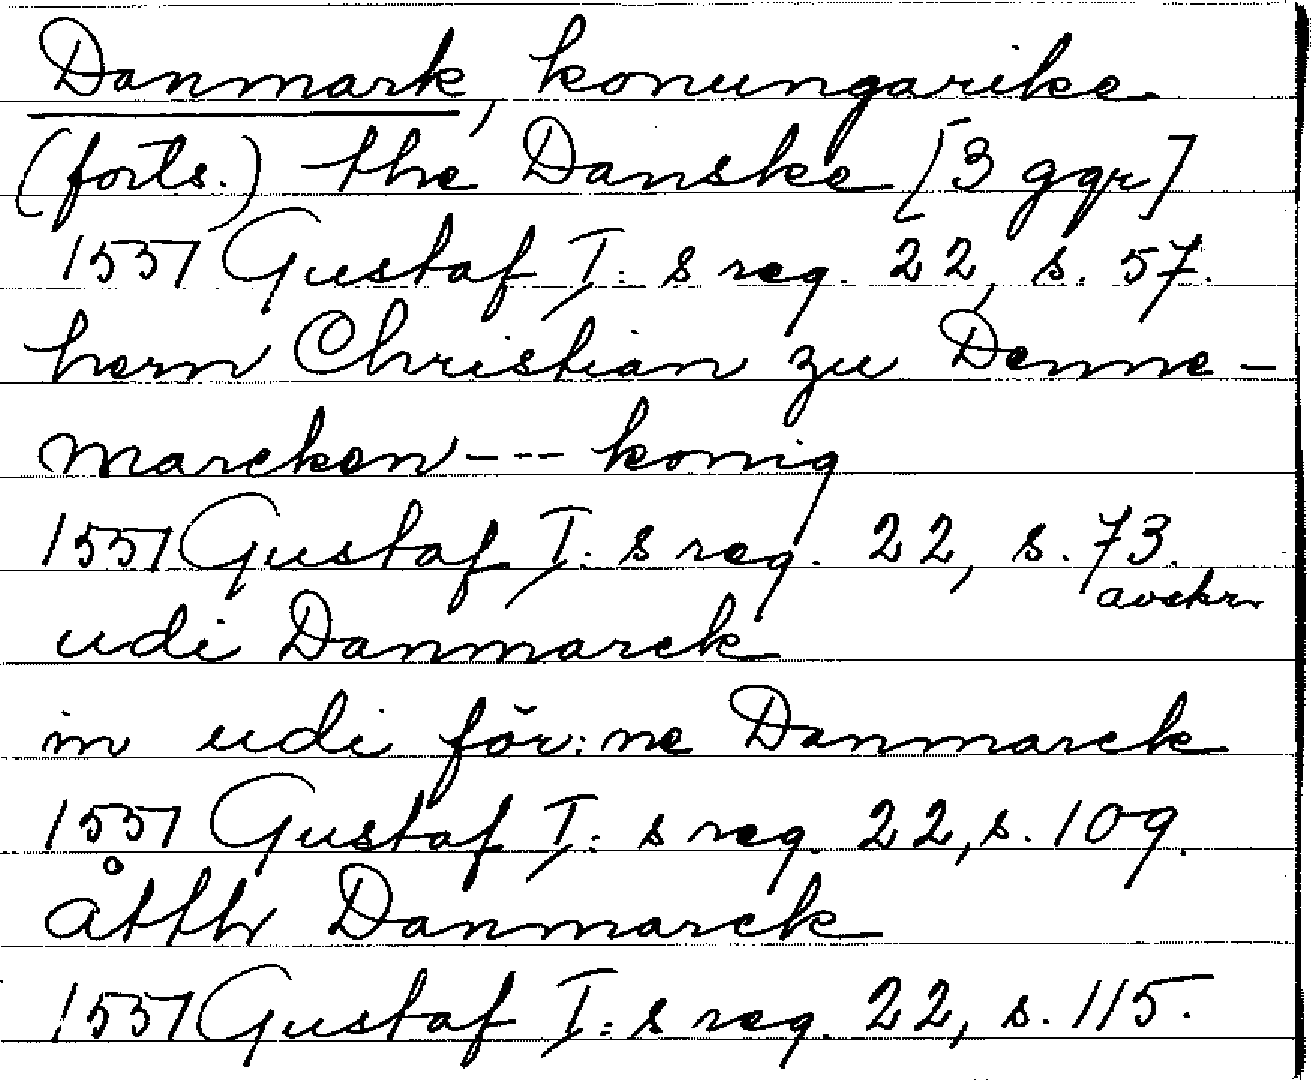 Danmark, konungarike
(forts.) the Danske [3 ggr]
1551 Gustaf I: s reg. 22, s. 57.
hern Christian zu Denne-
marcken --- konig
1551 Gustaf I: s reg. 22, s. 73.
avskr.
udi Danmarck
in udiför:ne Danmarck
1551 Gustaf I: s reg. 22, s. 109.
åtth Danmarck
1551 Gustaf I: s reg. 22, s. 115.